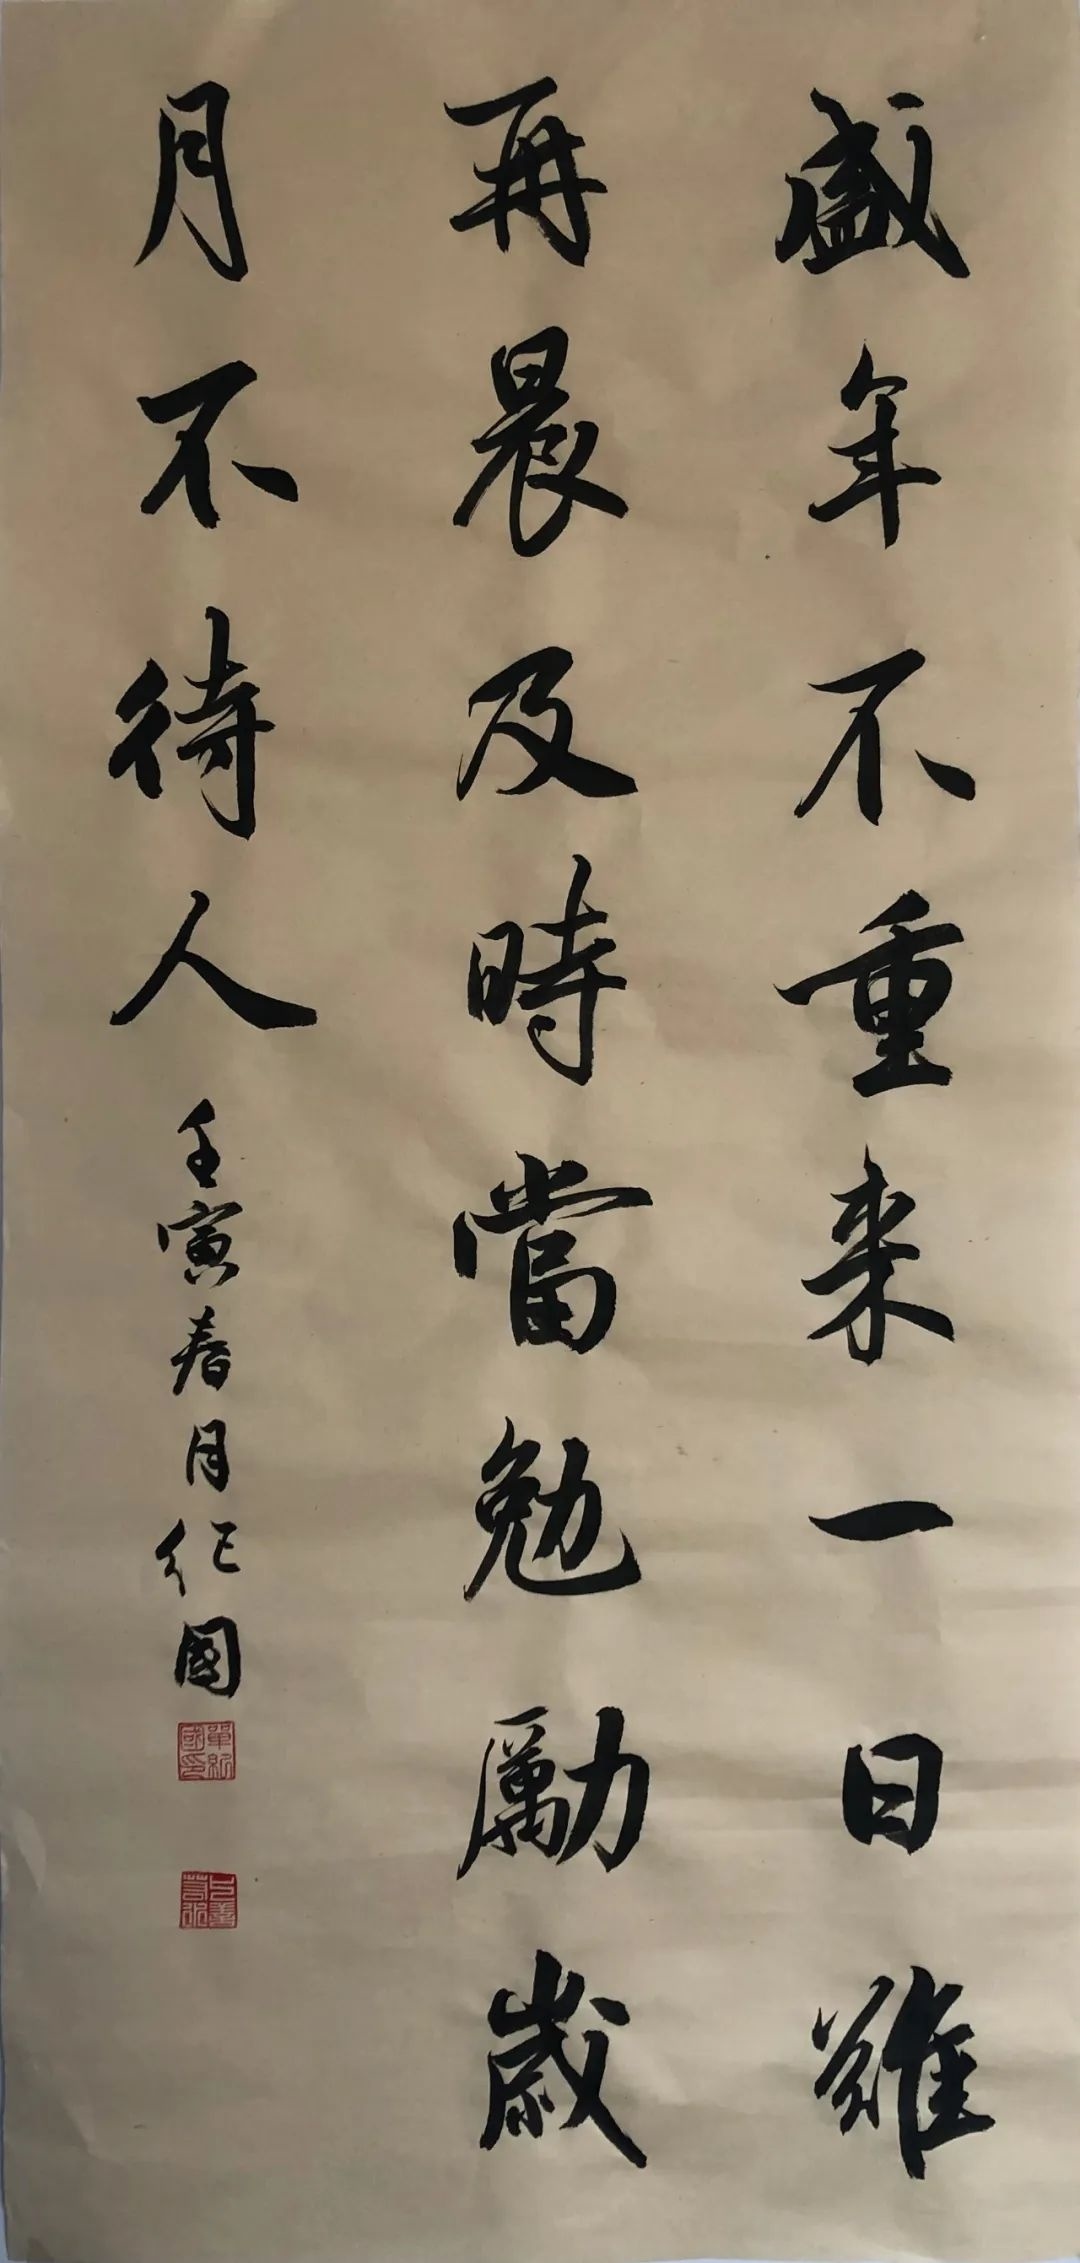 盛年不重来一日難
再晨及時當勉勵歲
月不待人
壬寅春月仁國